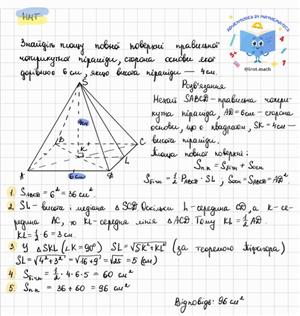 НМТ
ADVENTURES IN MATHEMATICS
Знайдіть площу повної поверхні правильної
чотирикутної піраміди, сторона основи якої
дорівнює 6 см, якщо висота піраміди — 4см.
Розв'язання
Нехай SABCD - правильна чотири-
кутна піраміда, AD=6см - сторона
основи, що є квадратом, SK=4см -
висота піраміди.
Площа повної поверхні:
Sпп = Sбічн + Sосн
Sбічн = ½ Pосн · SL, Sосн = SABCD = AD²
S
4см
B
C
K
L
A
6 см
D
1 SABCD = 6² = 36 см².
2 SL - висота і медіана △SCD. Оскільки L - середина CD, а K - се-
редина AC, то KL - середня лінія △ACD. Тому KL = ½ AD.
KL = ½ · 6 = 3 см.
3 У △SKL (∠K = 90°) SL = √SK² + KL² (за теоремою Піфагора)
SL = √4² + 3² = √16 + 9 = √25 = 5 (см)
4 Sбічн = ½ · 4 · 6 · 5 = 60 см²
5 Sпп = 36 + 60 = 96 см²
Відповідь: 96 см²